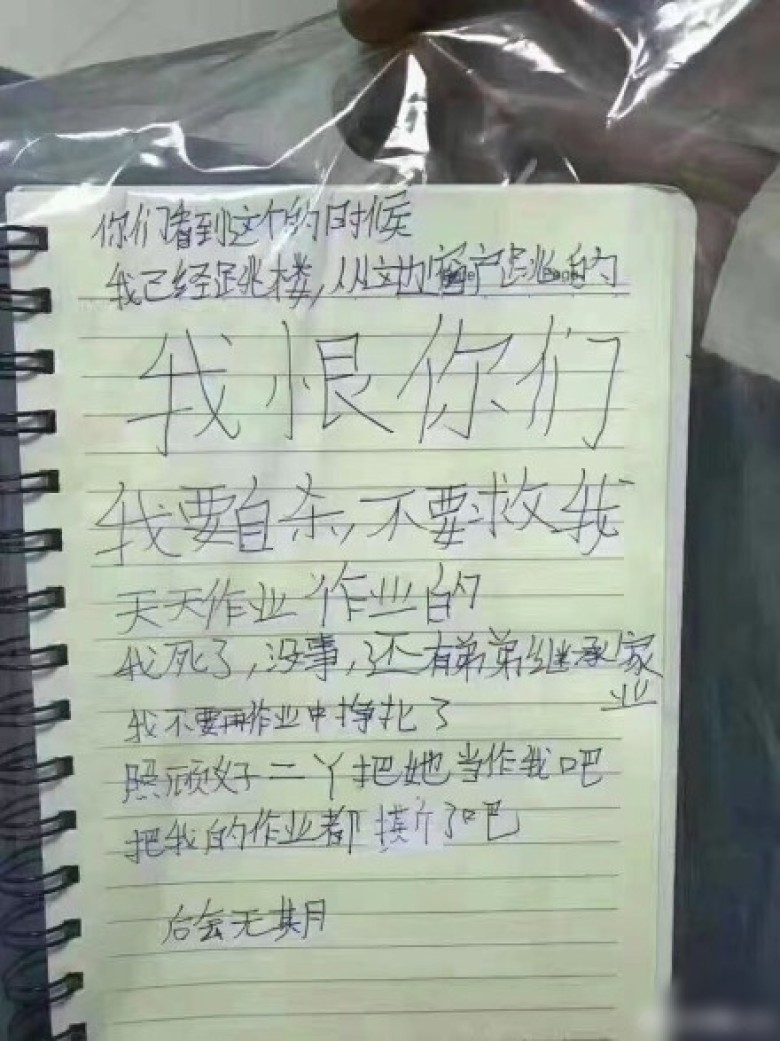 你们看到这个的时候
我已经跳楼,从这边窗户跳的
我恨你们
我要自杀,不要救我
天天作业作业的
我死了,没事,还有弟弟继承家业
我不要再作业中挣扎了
照顾好二丫把她当作我吧
把我的作业都撕了吧
后会无期